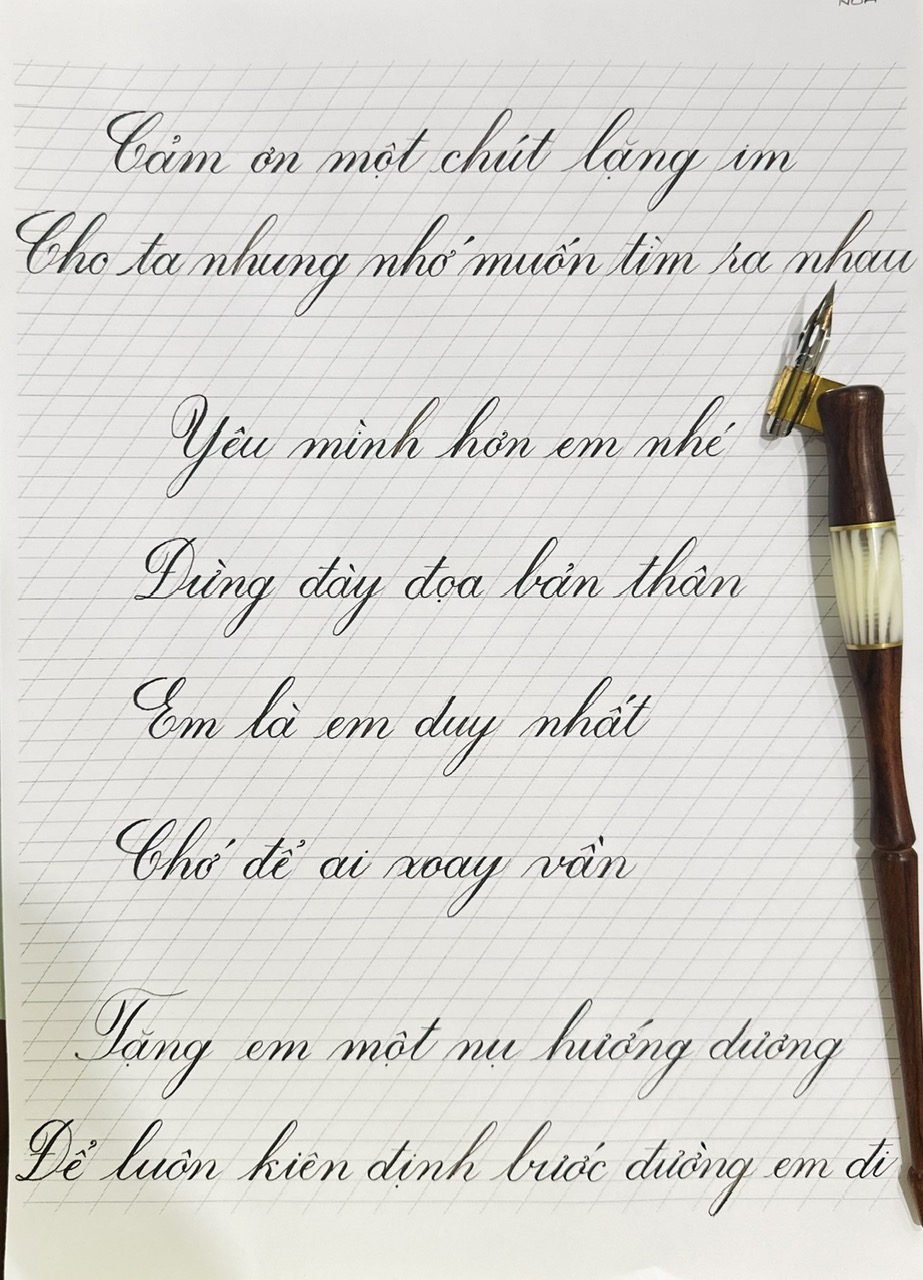 Cảm ơn một chút lặng im
Cho ta nhung nhớ muốn tìm ra nhau
Yêu mình hơn em nhé
Đừng đày đọa bản thân
Em là em duy nhất
Chớ để ai xoay vần
Tặng em một nụ hướng dương
Để luôn kiên định bước đường em đi